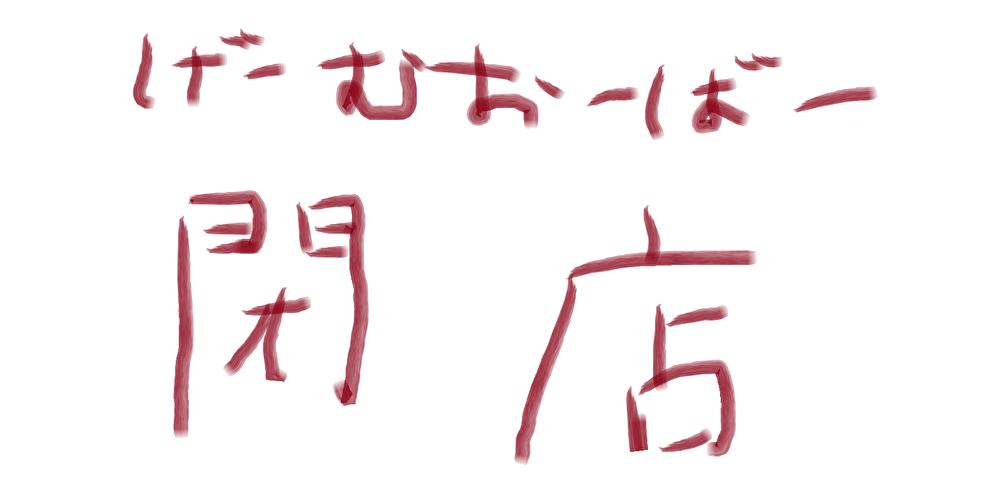 げーむおーばー
閉店